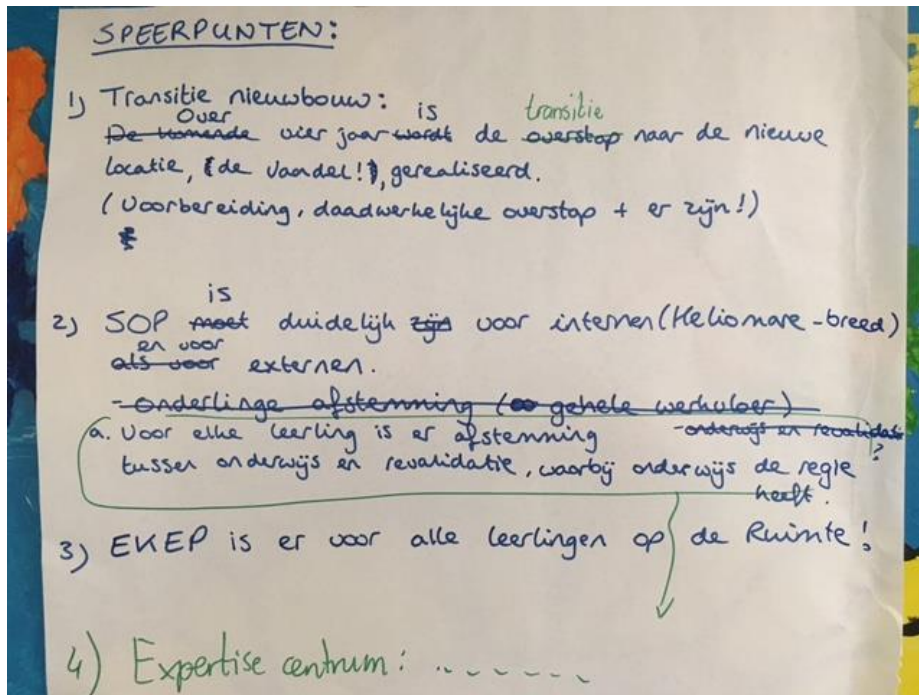 SPEERPUNTEN:
1) Transitie nieuwbouw:
Over is transitie
De komende vier jaar wordt de overstap naar de nieuwe
locatie, (de Vaandel!), gerealiseerd.
(Voorbereiding, daadwerkelijke overstap + er zijn!)
is
2) SOP moet duidelijk zijn voor internen (Heliomare-breed)
en voor
als voor externen.
- onderlinge afstemming ( gehele werkvloer)
- onderwijs en revalidatie
a. Voor elke leerling is er afstemming ?
tussen onderwijs en revalidatie, waarbij onderwijs de regie
heeft.
3) EKEP is er voor alle leerlingen op de Ruimte!
4) Expertise centrum: ......